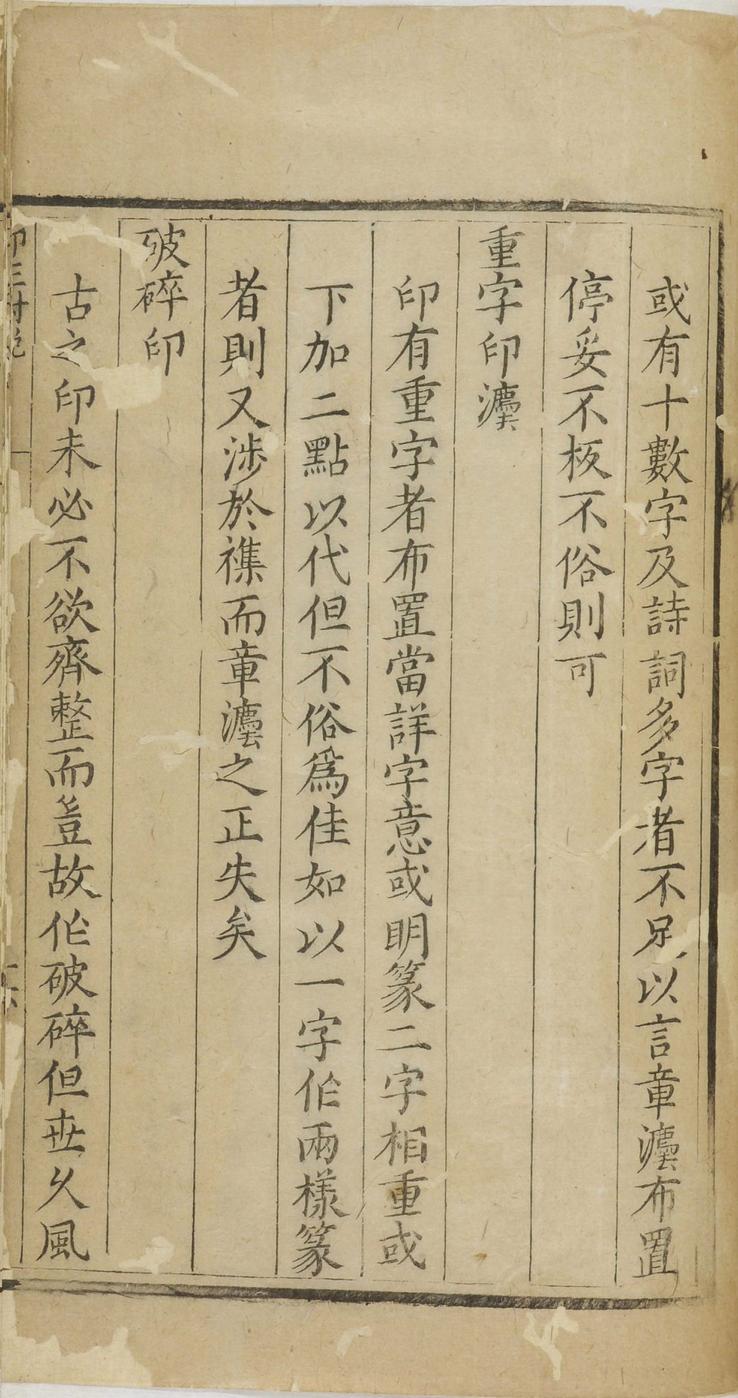 或有十數字及詩詞多字者不足以言章灋布置
停妥不板不俗則可
重字印灋
印有重字者布置當詳字意或明篆二字相重或
下加二點以代但不俗爲佳如以一字作兩樣篆
者則又涉於襍而章灋之正失矣
破碎印
古之印未必不欲齊整而豈故作破碎但世久風